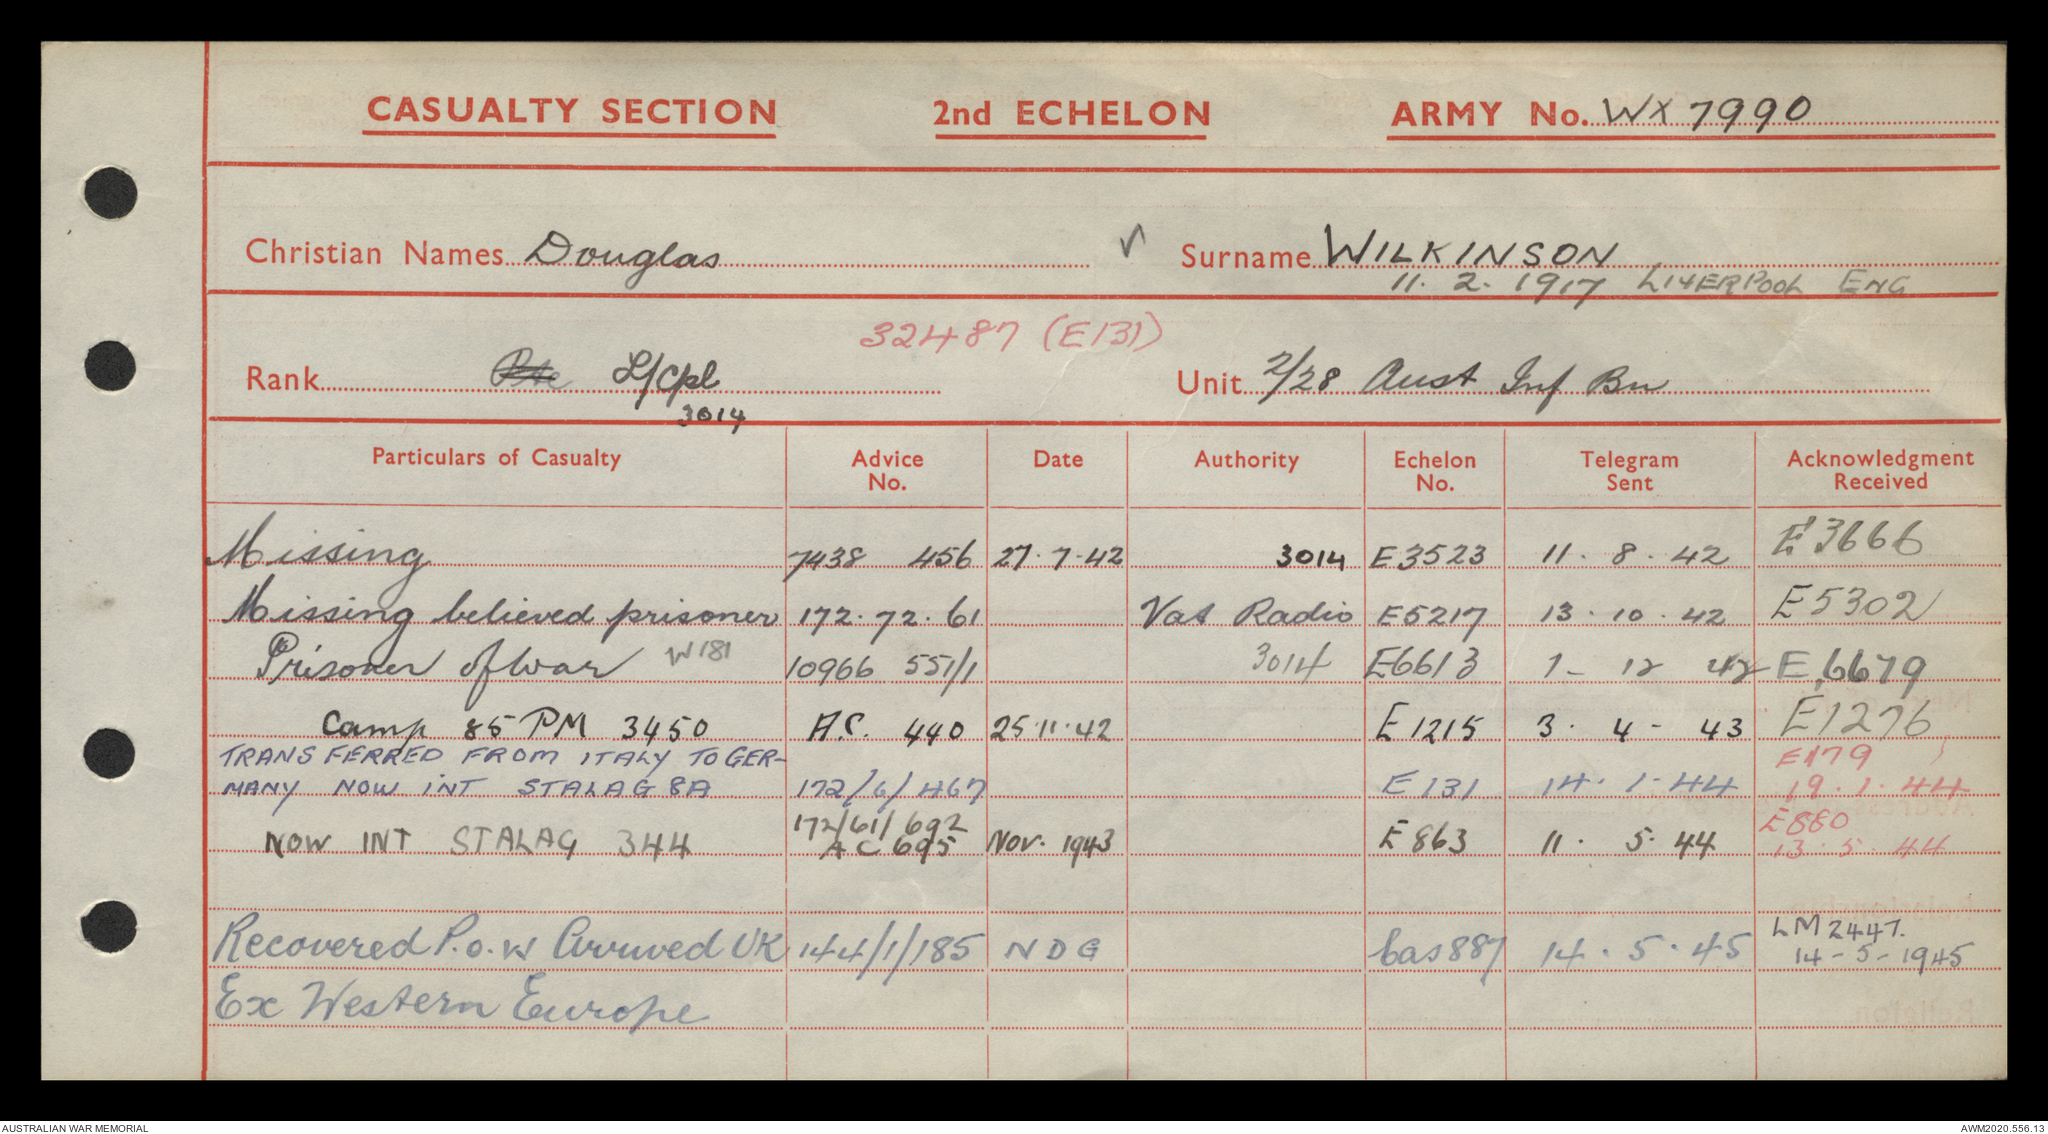 CASUALTY SECTION 2nd ECHELON ARMY No. WX 7990
Christian Names Douglas Surname WILKINSON
11. 2. 1917 LIVERPOOL ENG
32487 (E131)
Rank Pte L/Cpl Unit 2/28 Aust Inf Bn
3014
Particulars of Casualty Advice No. Date Authority Echelon No. Telegram Sent Acknowledgment Received
Missing 7438 456 27·7·42 3014 E3523 11 · 8 · 42 E3666
Missing believed prisoner 172.72.61 Vat Radio E5217 13 · 10 · 42 E5302
Prisoner of War W181 10966 551/1 3014 E6613 1 - 12 42 E6679
Camp 85 PM 3450 A.C. 440 25·11·42 E1215 3 · 4 - 43 E1276
TRANSFERRED FROM ITALY TO GER- E179
MANY NOW INT STALAG 8A 172/6/467 E131 14·1·44 19·1·44
172/61/692 E880
NOW INT STALAG 344 AC 695 Nov. 1943 E863 11· 5· 44 13·5·44
Recovered P.o.w Arrived UK 144/1/185 NDG Cas887 14·5·45 LM2447.
14-5-1945
Ex Western Europe
AUSTRALIAN WAR MEMORIAL AWM2020.556.13